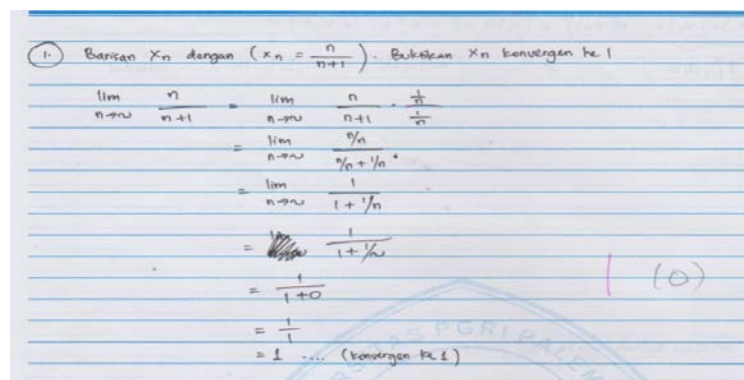 1. Barisan Xn dengan (xn = n/(n+1)). Buktikan Xn konvergen ke 1
lim n→∞ n/(n+1) = lim n→∞ n/(n+1) · (1/n)/(1/n)
= lim n→∞ (n/n)/(n/n + 1/n)
= lim n→∞ 1/(1 + 1/n)
= 1/(1 + 1/∞)
= 1/(1+0)
(0)
= 1/1
= 1 .... (konvergen ke 1)
AS PGRI PALE